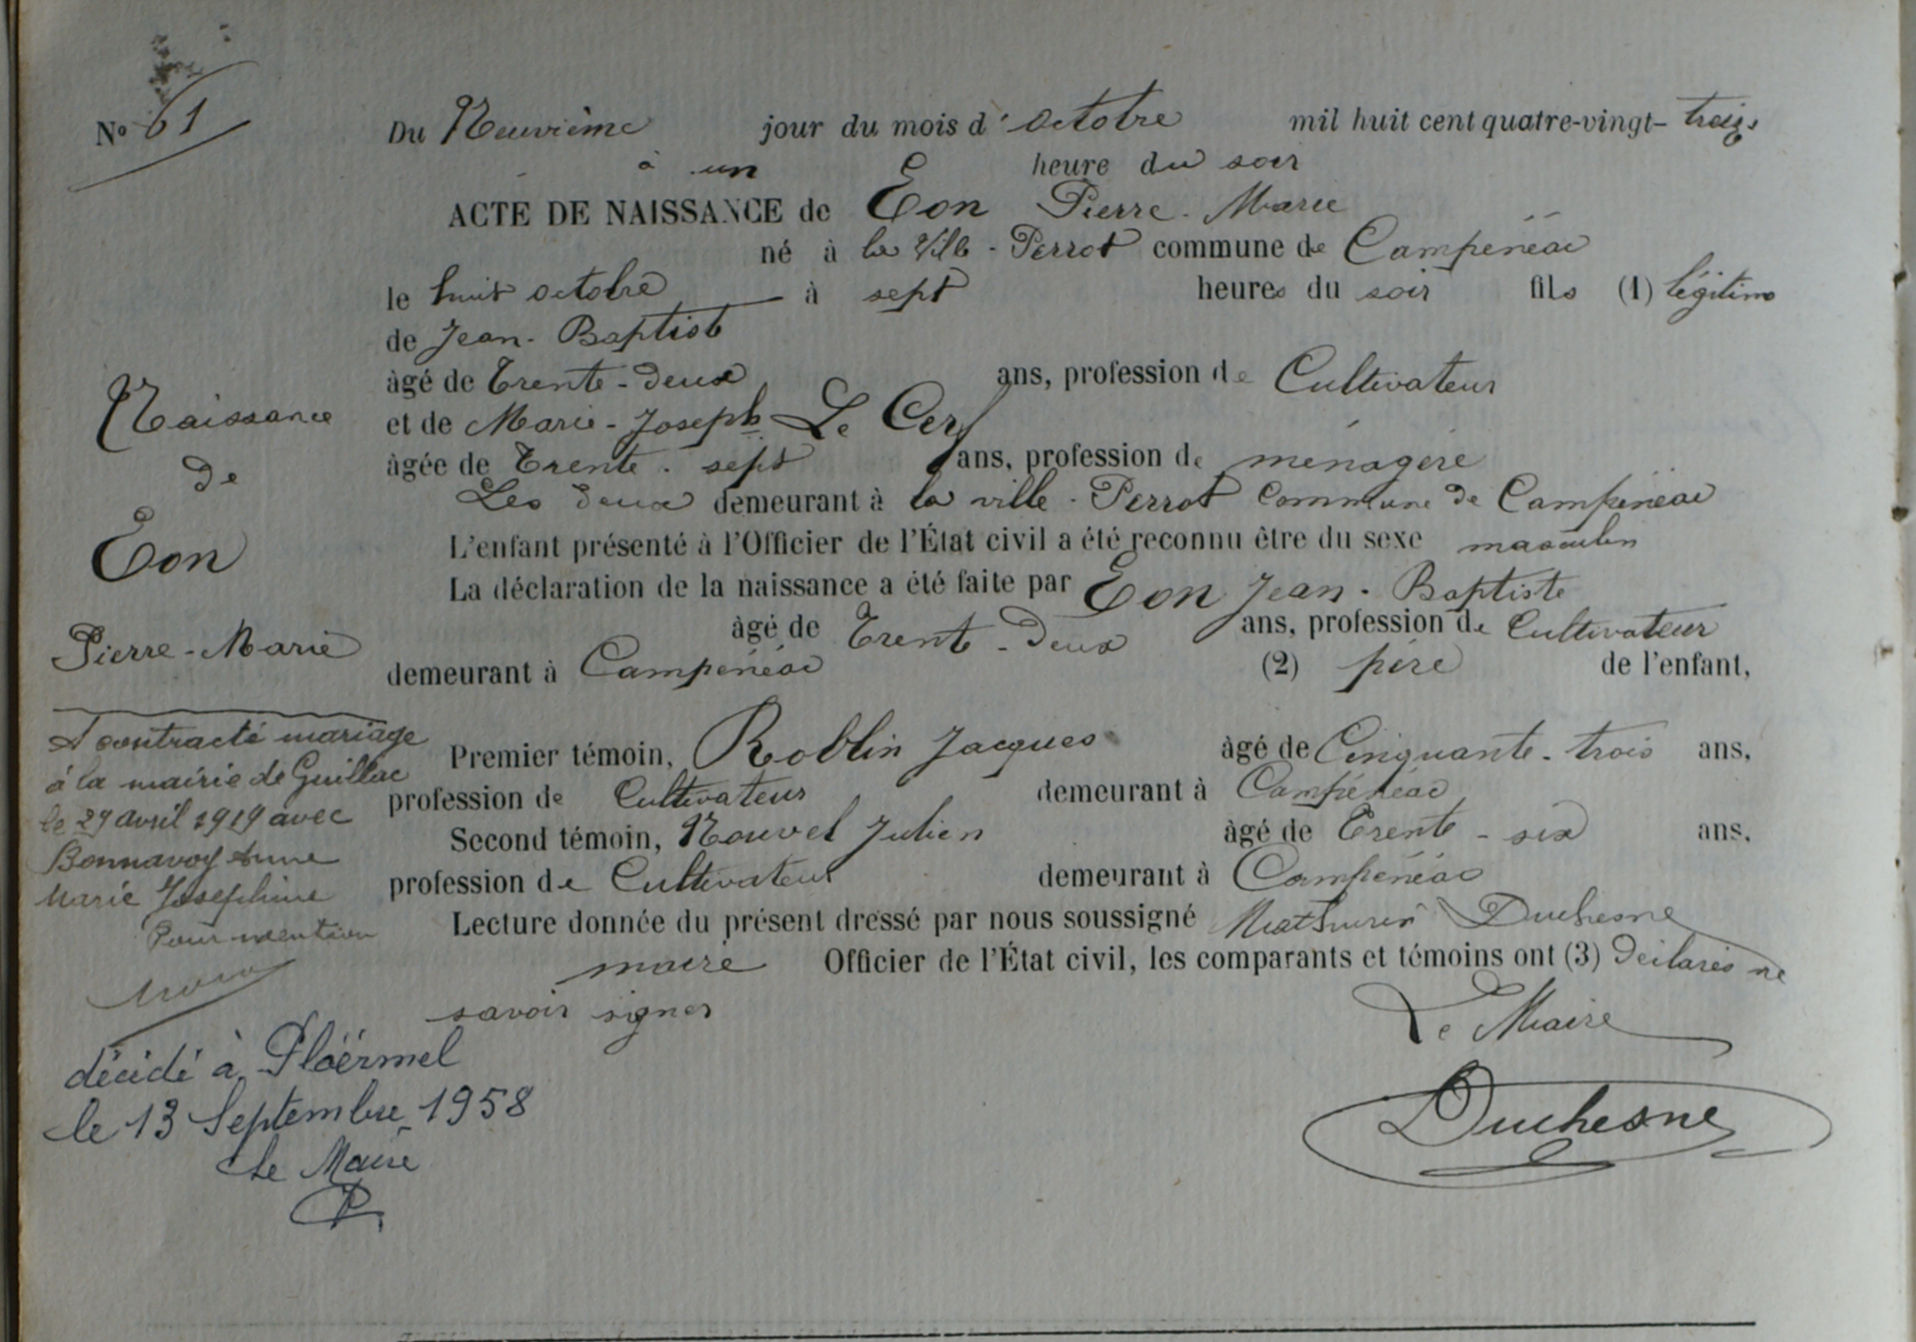 No 61
Du Neuvième jour du mois d'octobre mil huit cent quatre-vingt-trois
à un heure du soir
ACTE DE NAISSANCE de Eon Pierre-Marie
né à la Ville-Perrot commune de Campénéac
le huit octobre à sept heures du soir fils (1) légitime
de Jean-Baptiste
âgé de Trente-deux ans, profession de Cultivateur
et de Marie-Joseph Le Cerf
âgée de Trente-sept ans, profession de ménagère
Les deux demeurant à la ville-Perrot commune de Campénéac
L'enfant présenté à l'Officier de l'État civil a été reconnu être du sexe masculin
La déclaration de la naissance a été faite par Eon Jean-Baptiste
âgé de Trente-Deux ans, profession de Cultivateur
demeurant à Campénéac (2) père de l'enfant,
Premier témoin, Roblin Jacques âgé de Cinquante-trois ans,
profession de Cultivateur demeurant à Campénéac
Second témoin, Nouvel Julien âgé de Trente-six ans,
profession de Cultivateur demeurant à Campénéac
Lecture donnée du présent dressé par nous soussigné Mathurin Duchesne
maire Officier de l'État civil, les comparants et témoins ont (3) déclarés ne
savoir signer
Le Maire
Duchesne
Naissance
de
Eon
Pierre-Marie
A contracté mariage
à la mairie de Guillac
le 27 avril 1919 avec
Bonnavoy Anne
Marie Josephine
Pour mention
décédé à Ploërmel
le 13 Septembre 1958
Le Maire